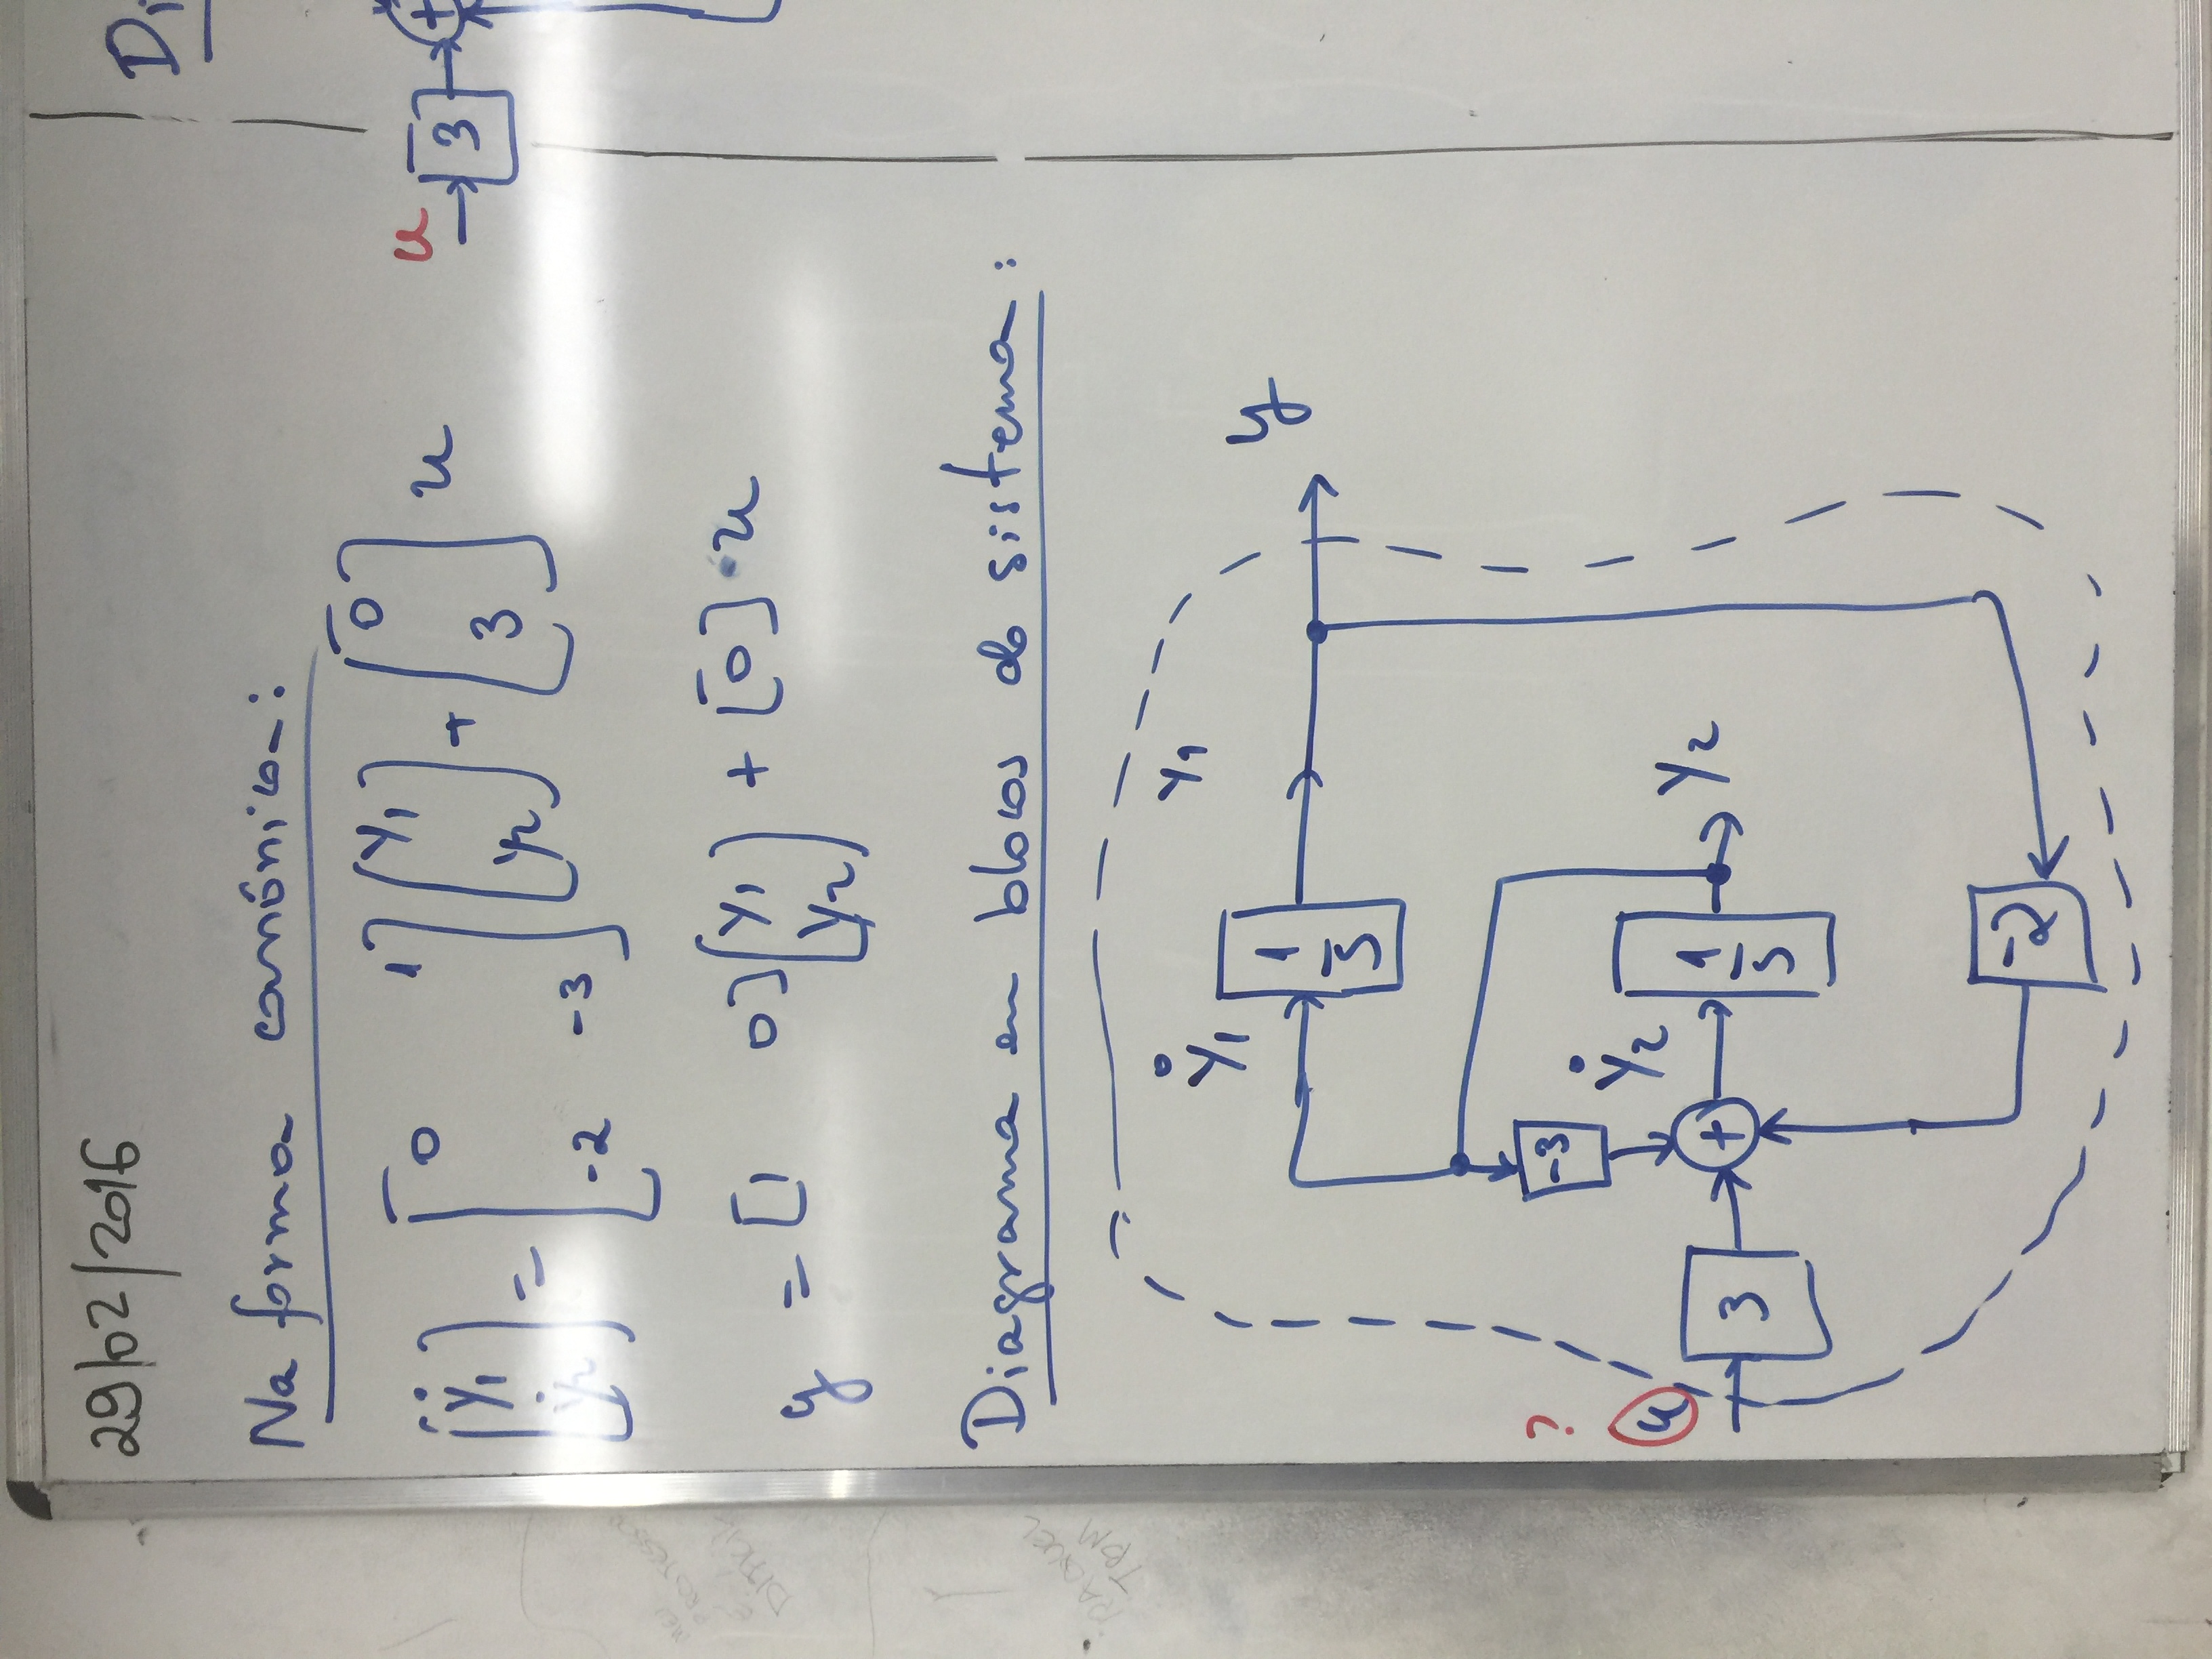 29/02/2016
Na forma canônica:
[ẏ1 ẏ2] = [0 1 -2 -3] [y1 y2] + [0 3] u
y = [1 0] [y1 y2] + [0] · u
Diagrama em blocos do sistema:
ẏ1 y1
1/s y
-3
?
u ẏ2
3 + 1/s y2
-2
Di
u
3 +
MEU
PROFESSOR
É
DIFÍCIL
RAQUEL
TBM